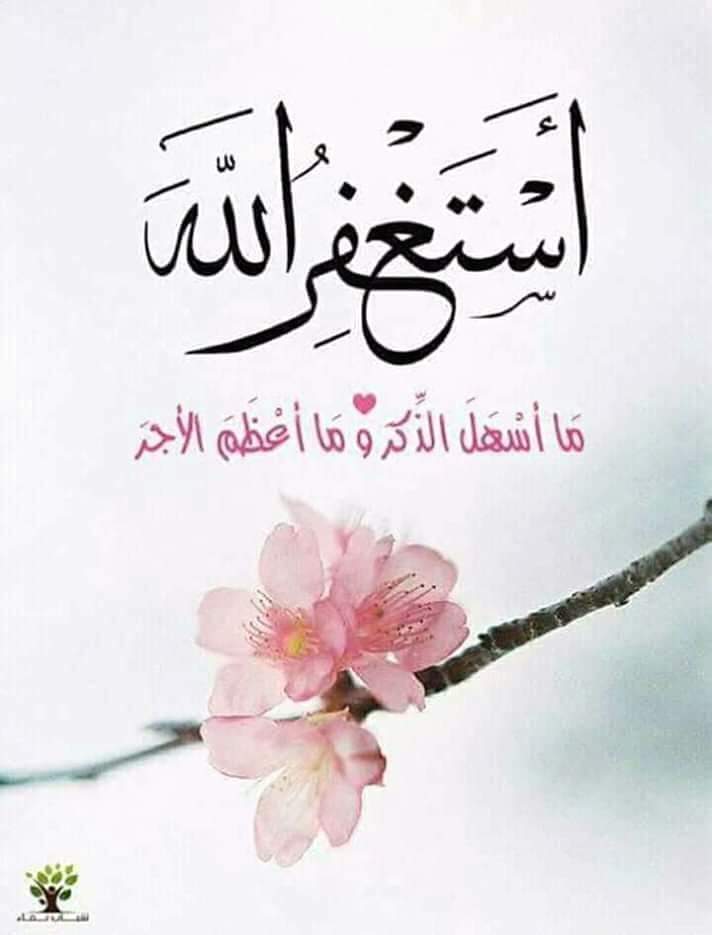 أَسْتَغْفِرُ اللَّه
مَا أسْهَلَ الذِّكرَ و مَا أعْظَمَ الأجرَ